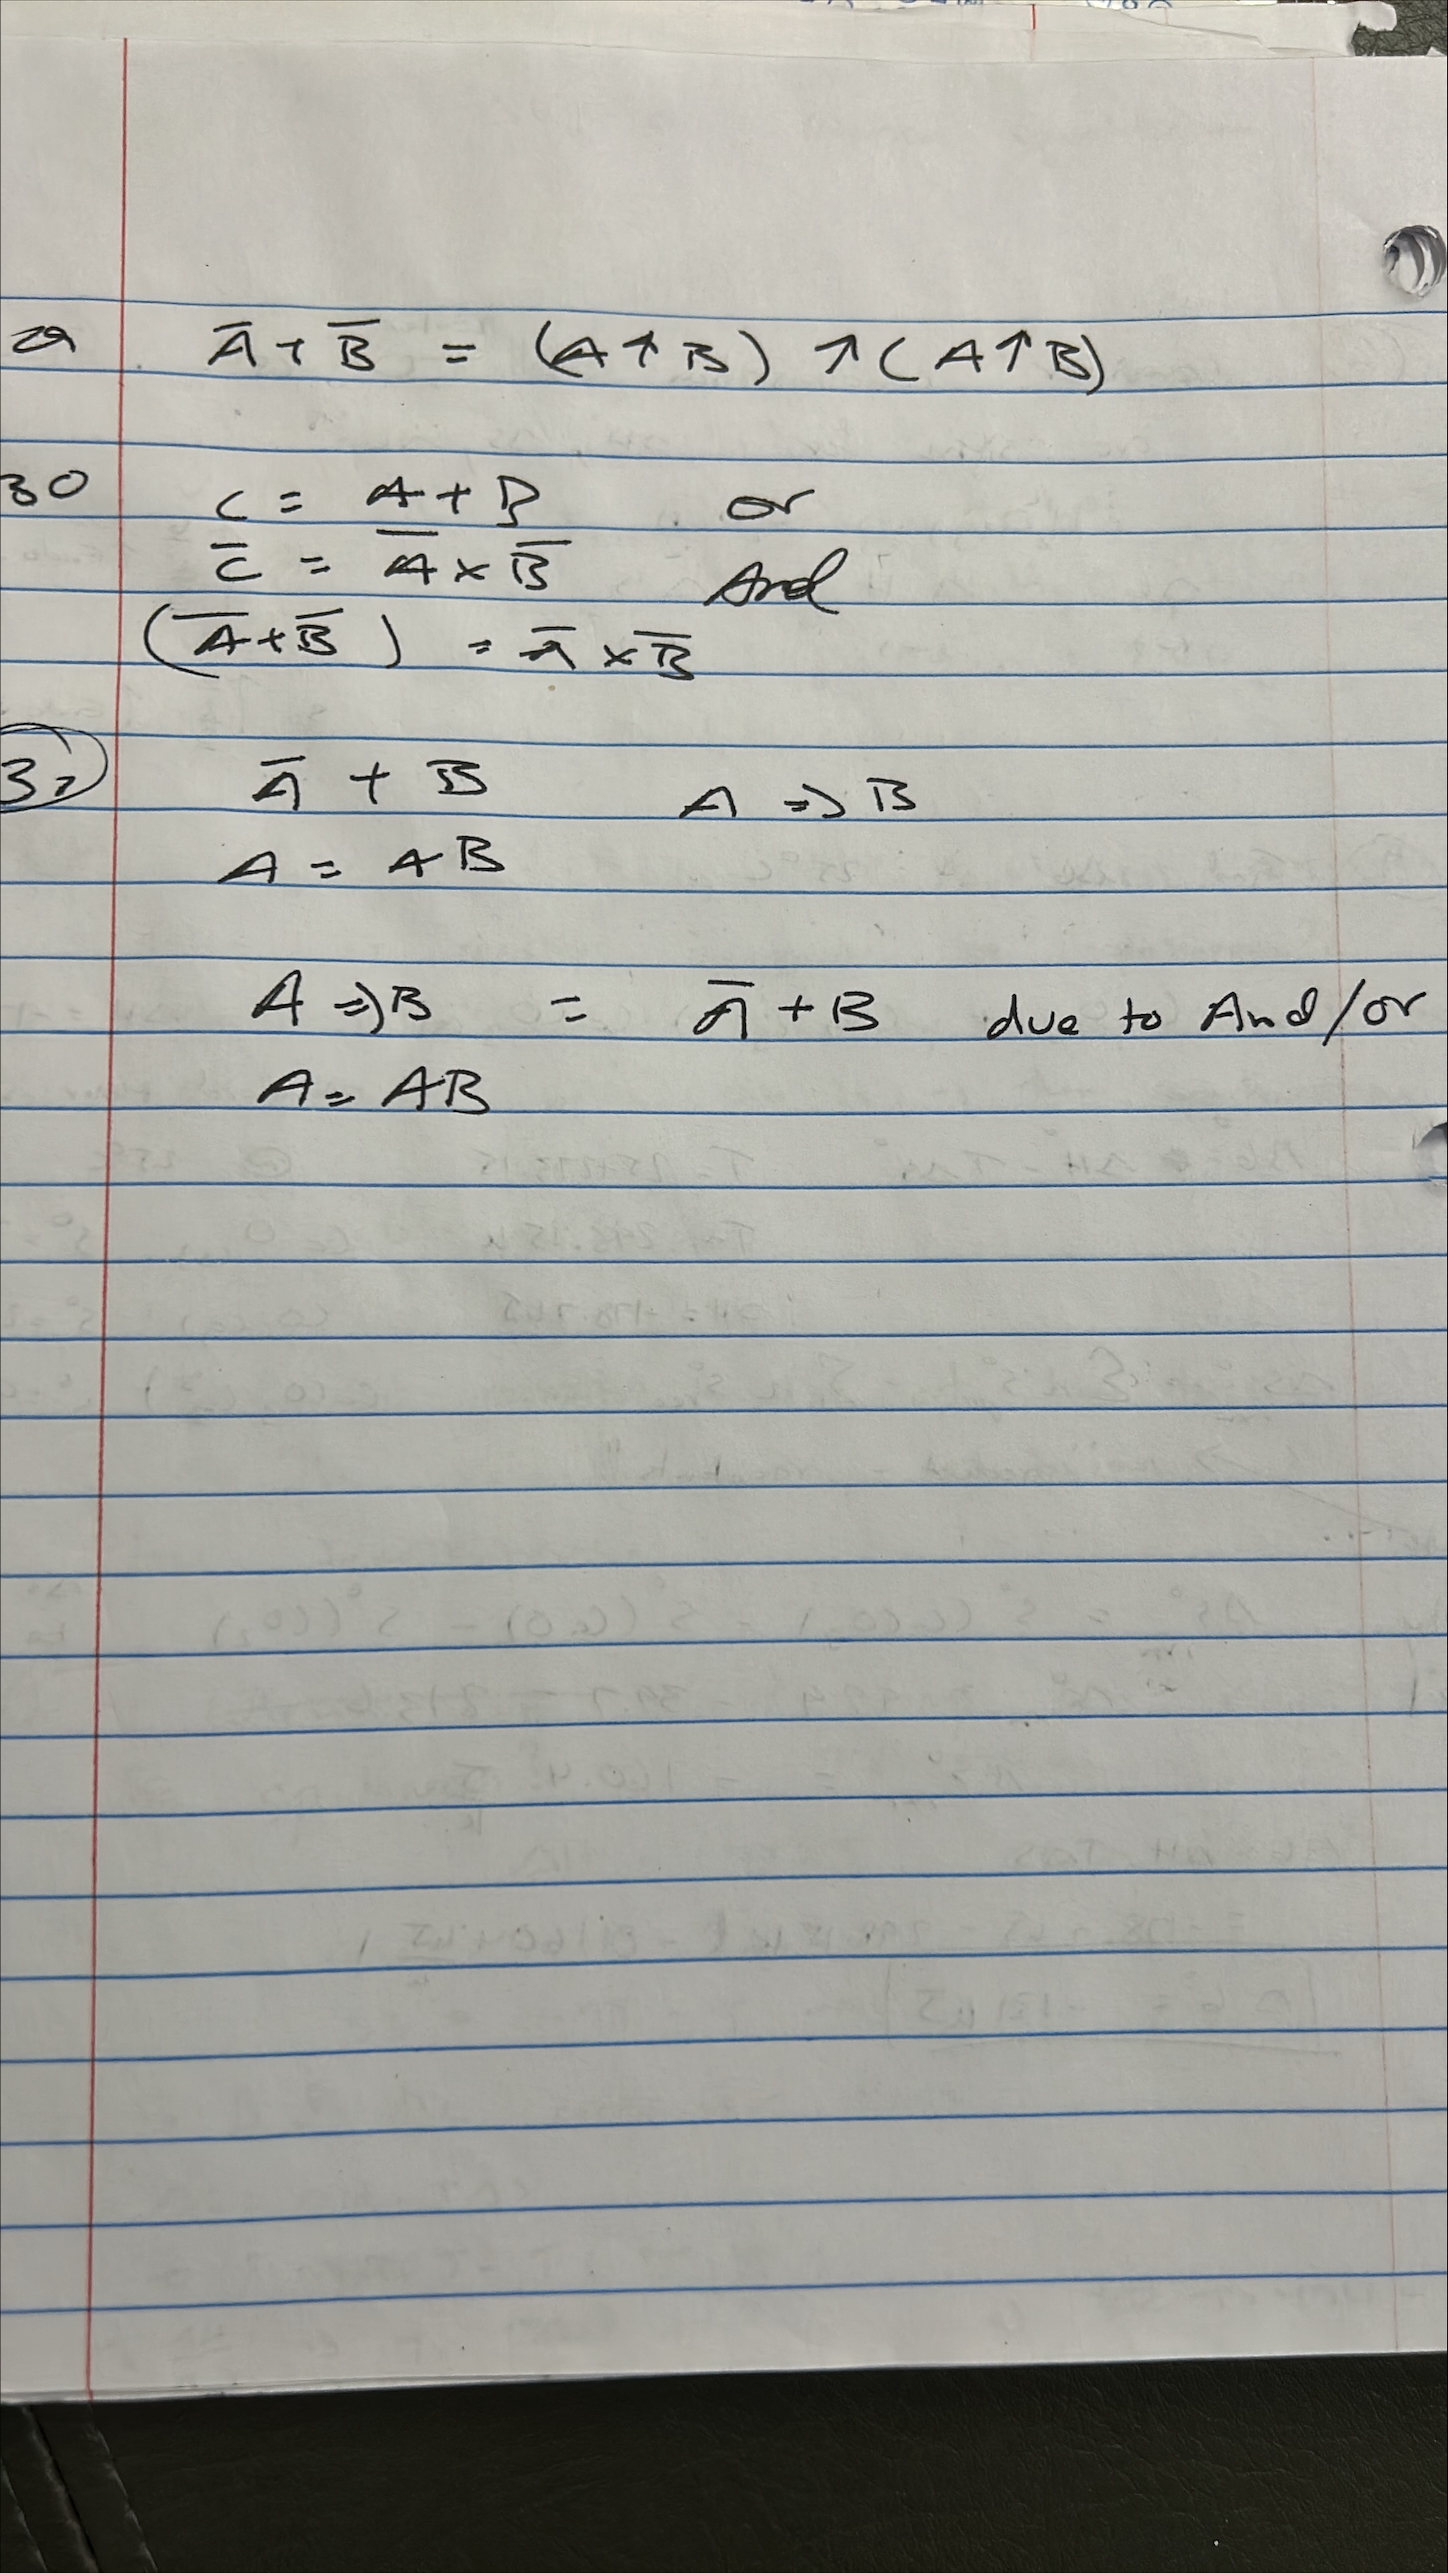 29 A̅ + B̅ = (A↑B) ↑ (A↑B)
30 C = A + B or
C̅ = A̅ × B̅ And
(A̅ + B̅) = A̅ × B̅
32 A̅ + B A ⇒ B
A = AB
A ⇒ B = A̅ + B due to And/or
A = AB